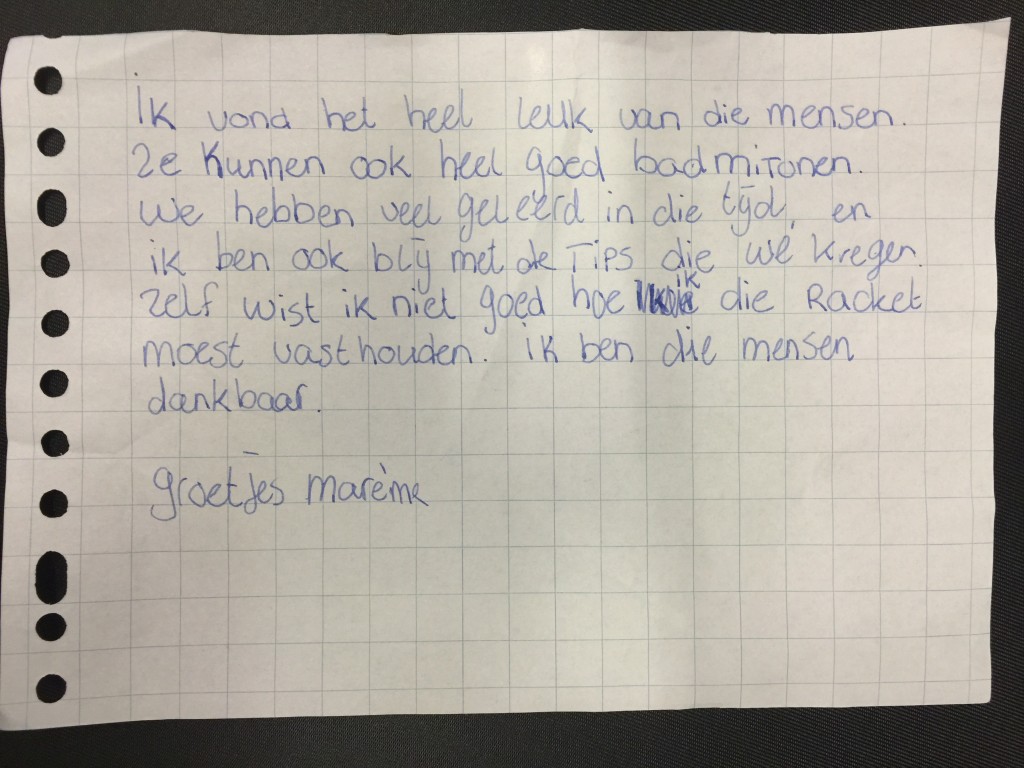 Ik vond het heel leuk van die mensen.
Ze kunnen ook heel goed badmitonen.
We hebben veel geleerd in die tijd, en
ik ben ook blij met de Tips die we kregen.
Zelf wist ik niet goed hoe ik die Racket
moest vasthouden. ik ben die mensen
dankbaar.
groetjes marème